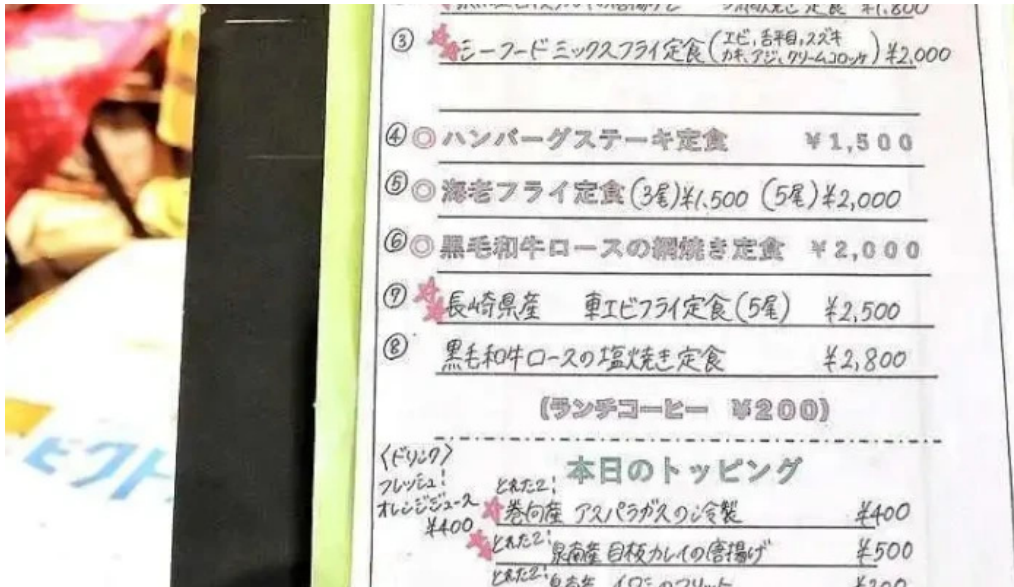 ¥1,800
③ シーフードミックスフライ定食(エビ,舌平目,スズキ
カキ,アジ,クリームコロッケ) ¥2,000
④◎ハンバーグステーキ定食 ¥1,500
⑤◎海老フライ定食(3尾)¥1,500 (5尾)¥2,000
⑥◎黒毛和牛ロースの網焼き定食 ¥2,000
⑦ 長崎県産 車エビフライ定食(5尾) ¥2,500
⑧ 黒毛和牛ロースの塩焼き定食 ¥2,800
(ランチコーヒー ¥200)
〈ドリンク〉
フレッシュ!
オレンジジュース
¥400
本日のトッピング
とれたて!
巻向産 アスパラガスの冷製 ¥400
とれたて!
泉南産 目板カレイの唐揚げ ¥500
とれたて!
泉南産 イワシのフリット